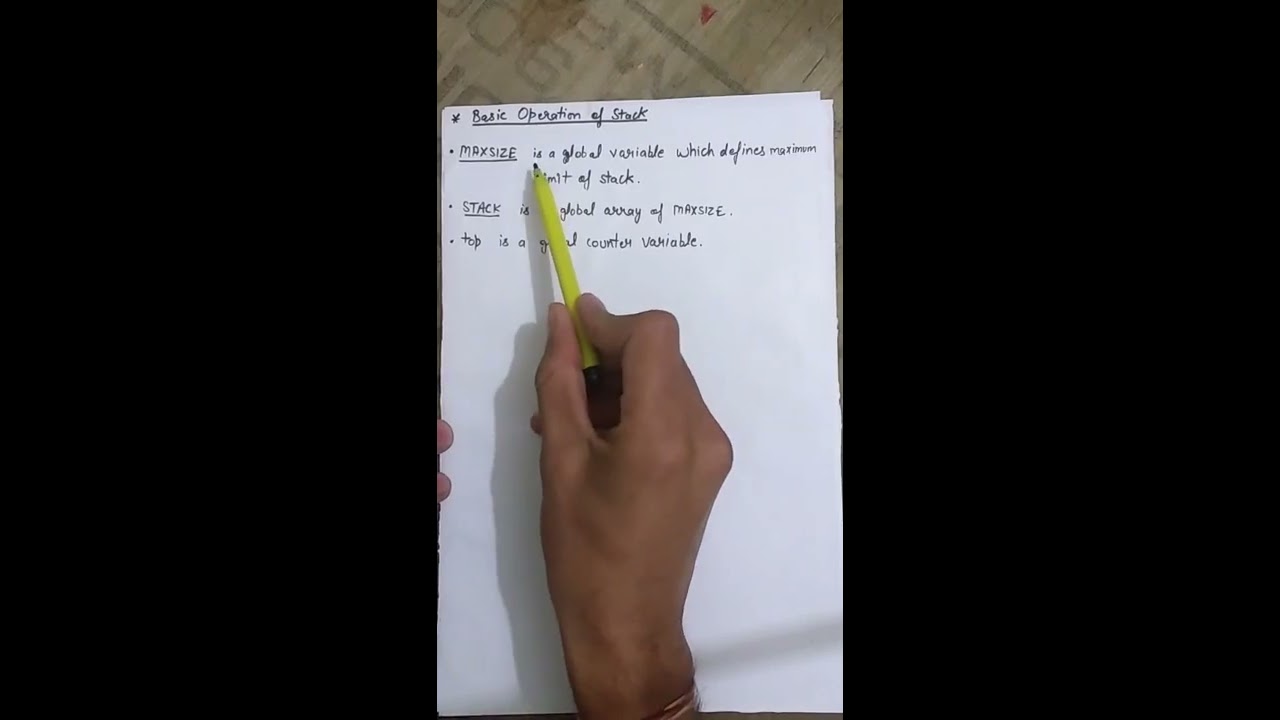 * Basic Operation of Stack
• MAXSIZE is a global variable which defines maximum
limit of stack.
• STACK is global array of MAXSIZE.
• top is a counter variable.